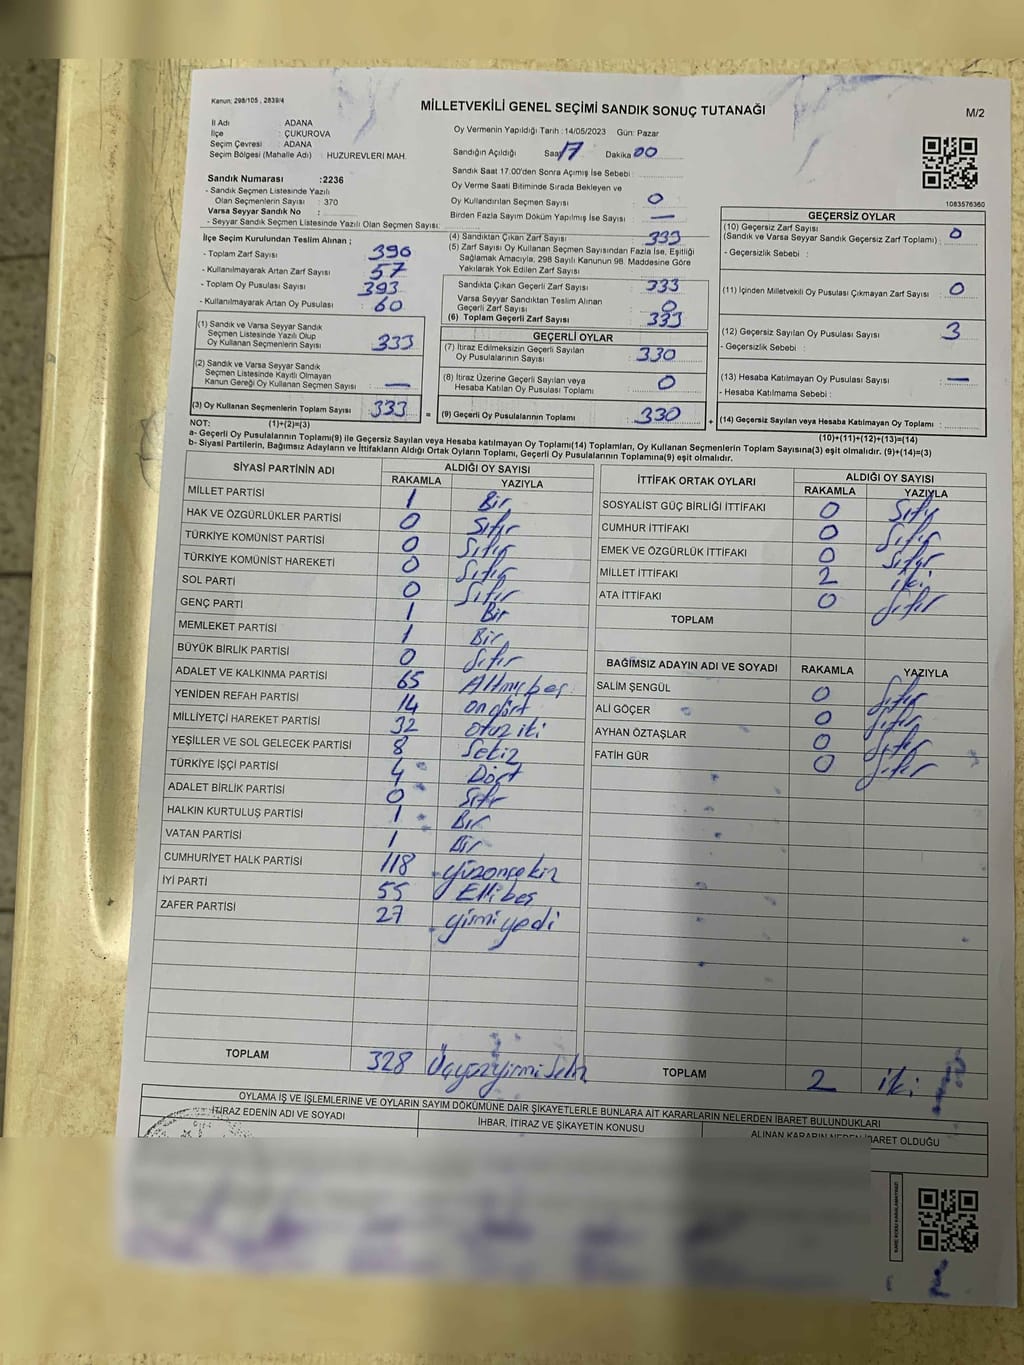 Kanun: 298/105 , 2839/4
MİLLETVEKİLİ GENEL SEÇİMİ SANDIK SONUÇ TUTANAĞI
M/2
İl Adı : ADANA
İlçe : ÇUKUROVA
Seçim Çevresi : ADANA
Seçim Bölgesi (Mahalle Adı) : HUZUREVLERİ MAH.
Sandık Numarası :2236
- Sandık Seçmen Listesinde Yazılı
Olan Seçmenlerin Sayısı : 370
Varsa Seyyar Sandık No :
- Seyyar Sandık Seçmen Listesinde Yazılı Olan Seçmen Sayısı:
İlçe Seçim Kurulundan Teslim Alınan ;
- Toplam Zarf Sayısı 390
- Kullanılmayarak Artan Zarf Sayısı 57
- Toplam Oy Pusulası Sayısı 393
- Kullanılmayarak Artan Oy Pusulası 60
(1) Sandık ve Varsa Seyyar Sandık
Seçmen Listesinde Yazılı Olup
Oy Kullanan Seçmenlerin Sayısı 333
(2) Sandık ve Varsa Seyyar Sandık
Seçmen Listesinde Kayıtlı Olmayan
Kanun Gereği Oy Kullanan Seçmen Sayısı —
(3) Oy Kullanan Seçmenlerin Toplam Sayısı 333
(1)+(2)=(3)
Oy Vermenin Yapıldığı Tarih : 14/05/2023 Gün: Pazar
Sandığın Açıldığı Saat 17 Dakika 00
Sandık Saat 17.00'den Sonra Açılmış İse Sebebi :
Oy Verme Saati Bitiminde Sırada Bekleyen ve
Oy Kullandırılan Seçmen Sayısı 0
Birden Fazla Sayım Döküm Yapılmış İse Sayısı —
(4) Sandıktan Çıkan Zarf Sayısı 333
(5) Zarf Sayısı Oy Kullanan Seçmen Sayısından Fazla İse, Eşitliği
Sağlamak Amacıyla, 298 Sayılı Kanunun 98. Maddesine Göre
Yakılarak Yok Edilen Zarf Sayısı
Sandıkta Çıkan Geçerli Zarf Sayısı 333
Varsa Seyyar Sandıktan Teslim Alınan
Geçerli Zarf Sayısı 0
(6) Toplam Geçerli Zarf Sayısı 333
GEÇERLİ OYLAR
(7) İtiraz Edilmeksizin Geçerli Sayılan
Oy Pusulalarının Sayısı 330
(8) İtiraz Üzerine Geçerli Sayılan veya
Hesaba Katılan Oy Pusulası Toplamı 0
= (9) Geçerli Oy Pusulalarının Toplamı 330
1083576360
GEÇERSİZ OYLAR
(10) Geçersiz Zarf Sayısı
(Sandık ve Varsa Seyyar Sandık Geçersiz Zarf Toplamı) : 0
- Geçersizlik Sebebi :
(11) İçinden Milletvekili Oy Pusulası Çıkmayan Zarf Sayısı : 0
(12) Geçersiz Sayılan Oy Pusulası Sayısı 3
- Geçersizlik Sebebi :
(13) Hesaba Katılmayan Oy Pusulası Sayısı —
- Hesaba Katılmama Sebebi :
+ (14) Geçersiz Sayılan veya Hesaba Katılmayan Oy Toplamı :
(10)+(11)+(12)+(13)=(14)
NOT:
a- Geçerli Oy Pusulalarının Toplamı(9) ile Geçersiz Sayılan veya Hesaba katılmayan Oy Toplamı(14) Toplamları, Oy Kullanan Seçmenlerin Toplam Sayısına(3) eşit olmalıdır. (9)+(14)=(3)
b- Siyasi Partilerin, Bağımsız Adayların ve İttifakların Aldığı Ortak Oyların Toplamı, Geçerli Oy Pusulalarının Toplamına(9) eşit olmalıdır.
SİYASİ PARTİNİN ADI ALDIĞI OY SAYISI
RAKAMLA YAZIYLA
MİLLET PARTİSİ 1 Bir
HAK VE ÖZGÜRLÜKLER PARTİSİ 0 Sıfır
TÜRKİYE KOMÜNİST PARTİSİ 0 Sıfır
TÜRKİYE KOMÜNİST HAREKETİ 0 Sıfır
SOL PARTİ 0 Sıfır
GENÇ PARTİ 1 Bir
MEMLEKET PARTİSİ 1 Bir
BÜYÜK BİRLİK PARTİSİ 0 Sıfır
ADALET VE KALKINMA PARTİSİ 65 Altmışbeş
YENİDEN REFAH PARTİSİ 14 ondört
MİLLİYETÇİ HAREKET PARTİSİ 32 otuz iki
YEŞİLLER VE SOL GELECEK PARTİSİ 8 Sekiz
TÜRKİYE İŞÇİ PARTİSİ 4 Dört
ADALET BİRLİK PARTİSİ 0 Sıfır
HALKIN KURTULUŞ PARTİSİ 1 Bir
VATAN PARTİSİ 1 Bir
CUMHURİYET HALK PARTİSİ 118 yüzonsekiz
İYİ PARTİ 55 Ellibeş
ZAFER PARTİSİ 27 yirmi yedi
TOPLAM 328 Üçyüzyirmi sekiz
İTTİFAK ORTAK OYLARI ALDIĞI OY SAYISI
RAKAMLA YAZIYLA
SOSYALİST GÜÇ BİRLİĞİ İTTİFAKI 0 Sıfır
CUMHUR İTTİFAKI 0 Sıfır
EMEK VE ÖZGÜRLÜK İTTİFAKI 0 Sıfır
MİLLET İTTİFAKI 2 iki
ATA İTTİFAKI 0 Sıfır
TOPLAM
BAĞIMSIZ ADAYIN ADI VE SOYADI RAKAMLA YAZIYLA
SALİM ŞENGÜL 0 Sıfır
ALİ GÖÇER 0 Sıfır
AYHAN ÖZTAŞLAR 0 Sıfır
FATİH GÜR 0 Sıfır
TOPLAM 2 iki
OYLAMA İŞ VE İŞLEMLERİNE VE OYLARIN SAYIM DÖKÜMÜNE DAİR ŞİKAYETLERLE BUNLARA AİT KARARLARIN NELERDEN İBARET BULUNDUKLARI
İTİRAZ EDENİN ADI VE SOYADI İHBAR, İTİRAZ VE ŞİKAYETİN KONUSU ALINAN KARARIN NEDEN İBARET OLDUĞU